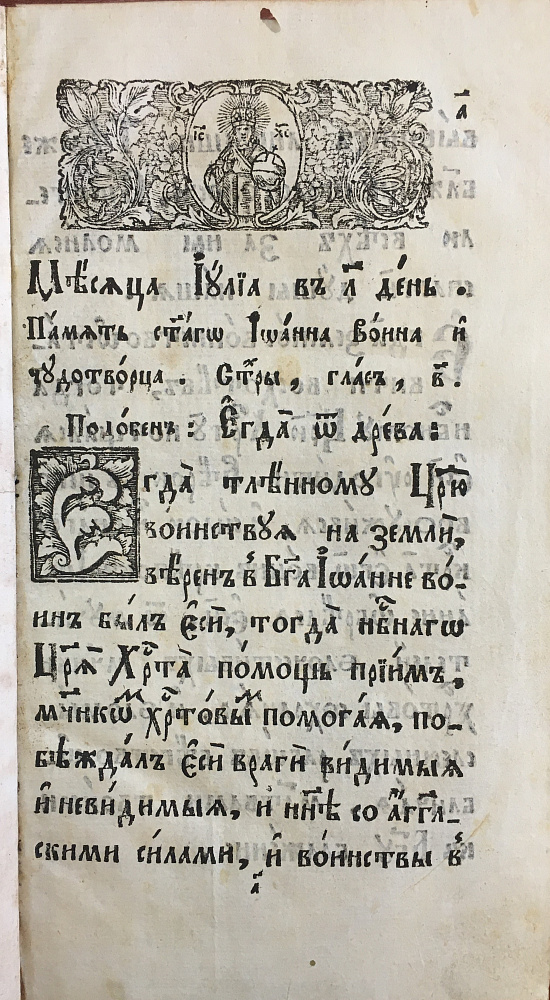 а҃
І҃С Х҃С
Мѣ́сѧца І҆ꙋ́лїа въ л҃ де́нь .
Па́мѧть ст҃а́гѡ І҆ѡа́нна во́ина и҆
чꙋдотво́рца . Стⷯры , гла́съ , в҃ .
Подо́бенъ : Є҆гда̀ ѿ дре́ва :
Є҆гда̀ тлѣ́нномꙋ Цр҃ю̀
во́инствꙋѧ на землѝ,
вѣ́ренъ в̾ Бг҃а І҆ѡа́нне во́-
инъ бы́лъ є҆сѝ, тогда̀ нб҃нагѡ
Цр҃ѧ̀ Хрⷭ҇та̀ по́мощь прїи́мъ,
мч҃никѡⷨ хрⷭ҇то́выⷨ помога́ѧ, по-
бѣжда́лъ є҆сѝ врагѝ ви́димыѧ
и҆ неви́димыѧ, и҆ нн҃ѣ со а҆́гг҃л-
скими си́лами, и҆ во́инствы в̾
а҃